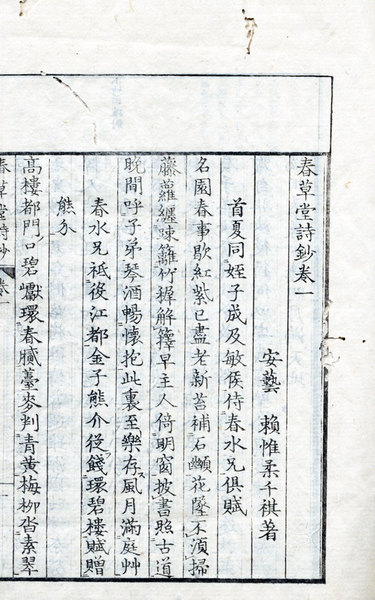 春草堂詩鈔卷一
安藝 賴惟柔千祺著
首夏同姪子成及敏侯侍春水兄俱賦
名園春事歇紅紫已盡老新苔補石顱花墜不須掃
藤蘿纏疎籬竹穉解籜早主人倚明窗披書照古道
晚間呼子弟琴酒暢懷抱此裏至樂存風月滿庭艸
春水兄祗後江都金子熊介後餞環碧樓賦贈
熊介
高樓都門口碧巘環春臓臺麥判青黃梅柳沓素翠
春草堂詩鈔 卷一